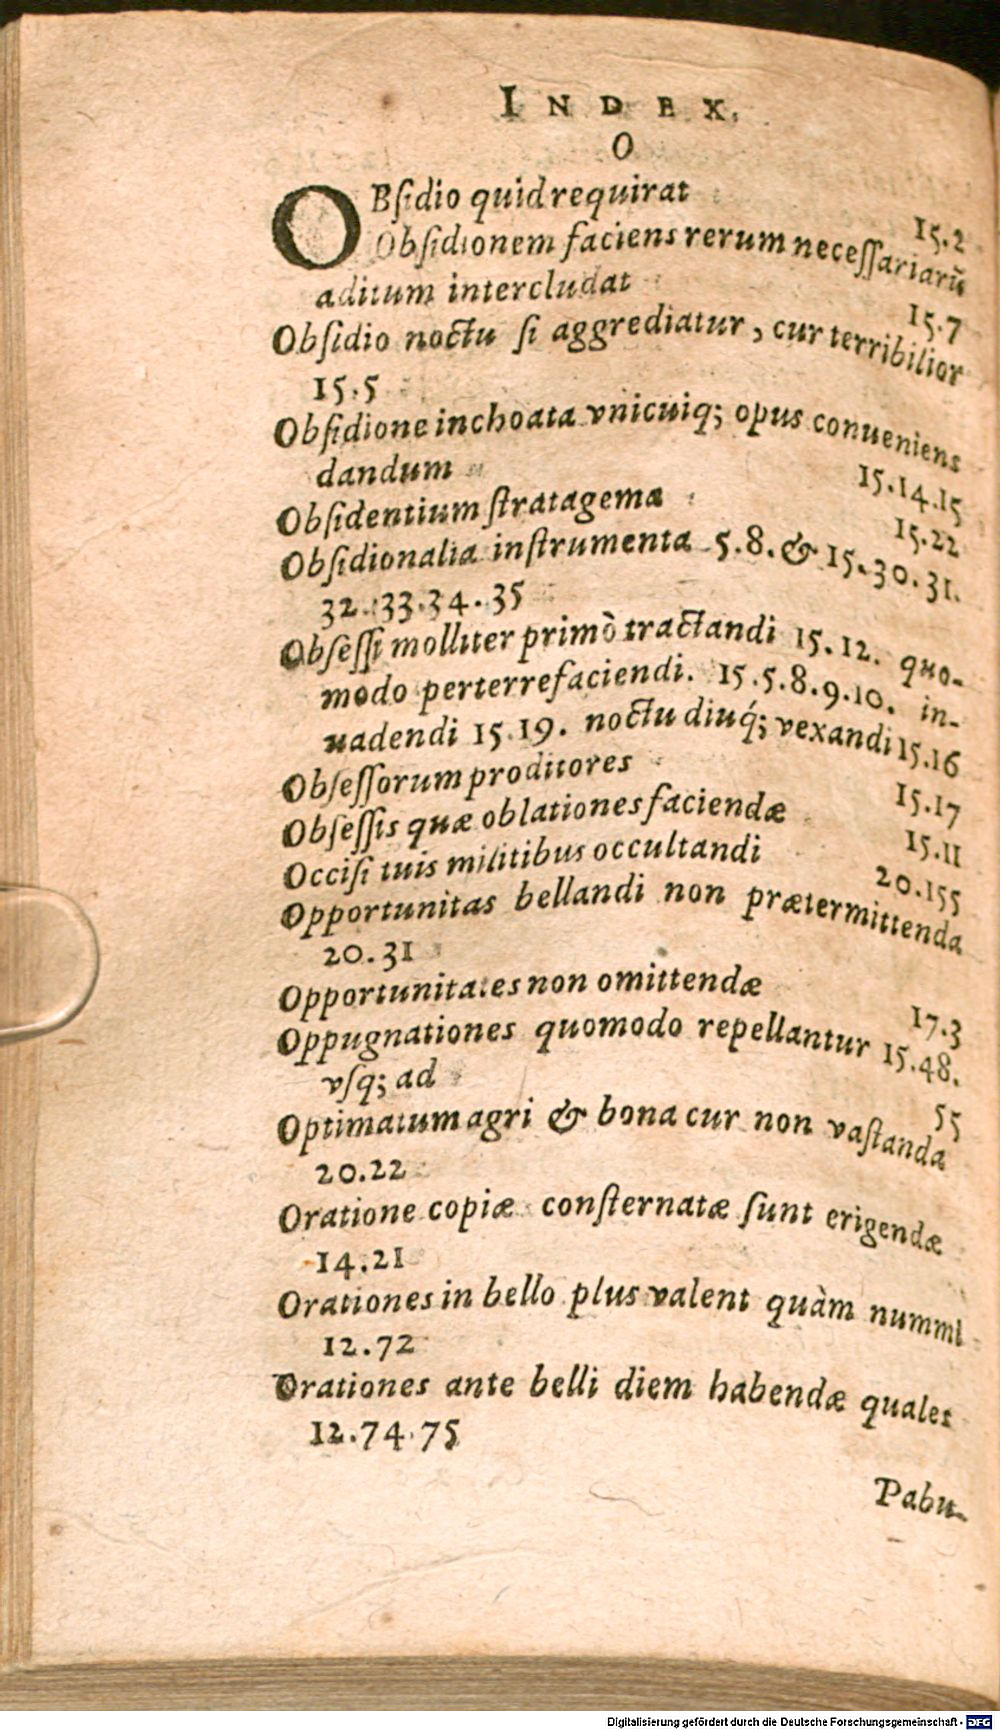 INDEX.
O
OBſidio quid requirat 15.2
Obſidionem faciens rerum neceſſariarũ
aditum intercludat 15.7
Obſidio noctu ſi aggrediatur, cur terribilior
15.5
Obſidione inchoata vnicuiq; opus conueniens
dandum 15.14.15
Obſidentium ſtratagema 15.22
Obſidionalia inſtrumenta 5.8. & 15.30.31.
32.33.34.35
Obſeſſi molliter primò tractandi 15.12. quo-
modo perterrefaciendi. 15.5.8.9.10. in-
uadendi 15.19. noctu diuq́; vexandi 15.16
Obſeſſorum proditores 15.17
Obſeſſis quæ oblationes faciendæ 15.11
Occiſi tuis militibus occultandi 20.155
Opportunitas bellandi non prætermittenda
20.31
Opportunitates non omittendæ 17.3
Oppugnationes quomodo repellantur 15.48.
vſq; ad 55
Optimatum agri & bona cur non vaſtanda
20.22
Oratione copiæ conſternatæ ſunt erigendæ
14.21
Orationes in bello plus valent quàm nummi
12.72
Orationes ante belli diem habendæ quales
12.74.75
Pabu-
Digitalisierung gefördert durch die Deutsche Forschungsgemeinschaft - DFG